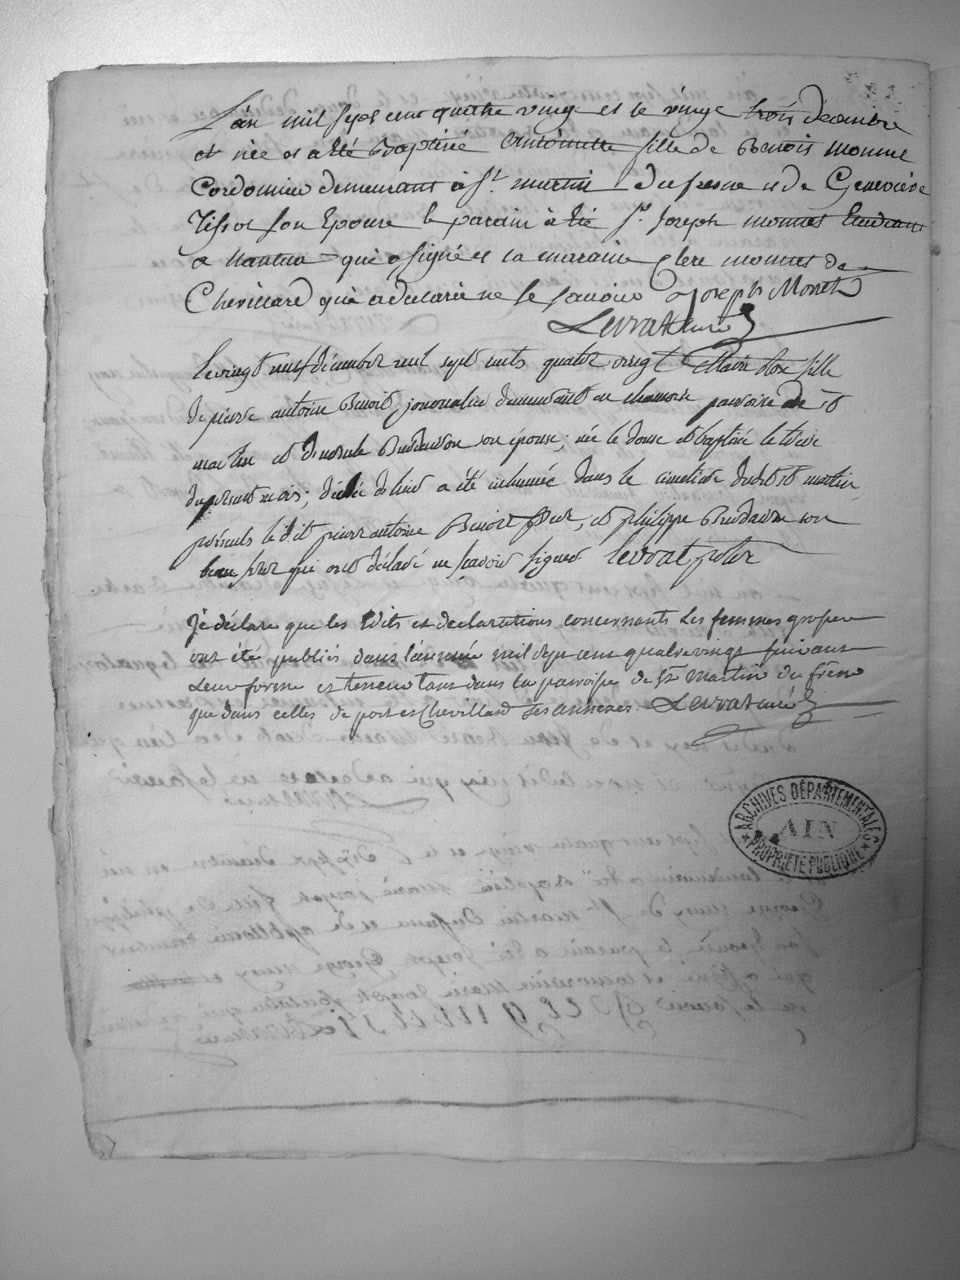 L'an mil sept cent quatre vingt et le vingt trois décembre
est née et a été Baptisée Antoinette fille de Benoit monnet
Cordonnier demeurant à St. martin du fresne et de Geneviève
Tissot son Epouse le parain à été Sr. Joseph monnet Etudiant
a nantua qui a signé et la marraine Clere monnet de
Chevillard qui a déclaré ne le savoir Joseph Monet
Levrat curé
le vingt neuf décembre mil sept cents quatre vingt fille
de pierre antoine Benoit journalier demeurant en paroisse de st
martin et de son épouse; née le douze et baptisée le treize
du présent mois; décédée hier a été inhumée dans le cimetière dudit st martin
présents le dit pierre antoine Benoit père, et philippe son
beau frère qui ont déclaré ne savoir signer levrat
Je déclare que les Edits et déclarations concernants les femmes grosses
ont été publiés dans l'année mil sept cent quatre vingt suivant
Leur forme et teneur tant dans la paroisse de St Martin du frêne
que dans celles de port et Chevillard ses annexes Levrat curé
ARCHIVES DÉPARTEMENTALES
AIN
PROPRIÉTÉ PUBLIQUE